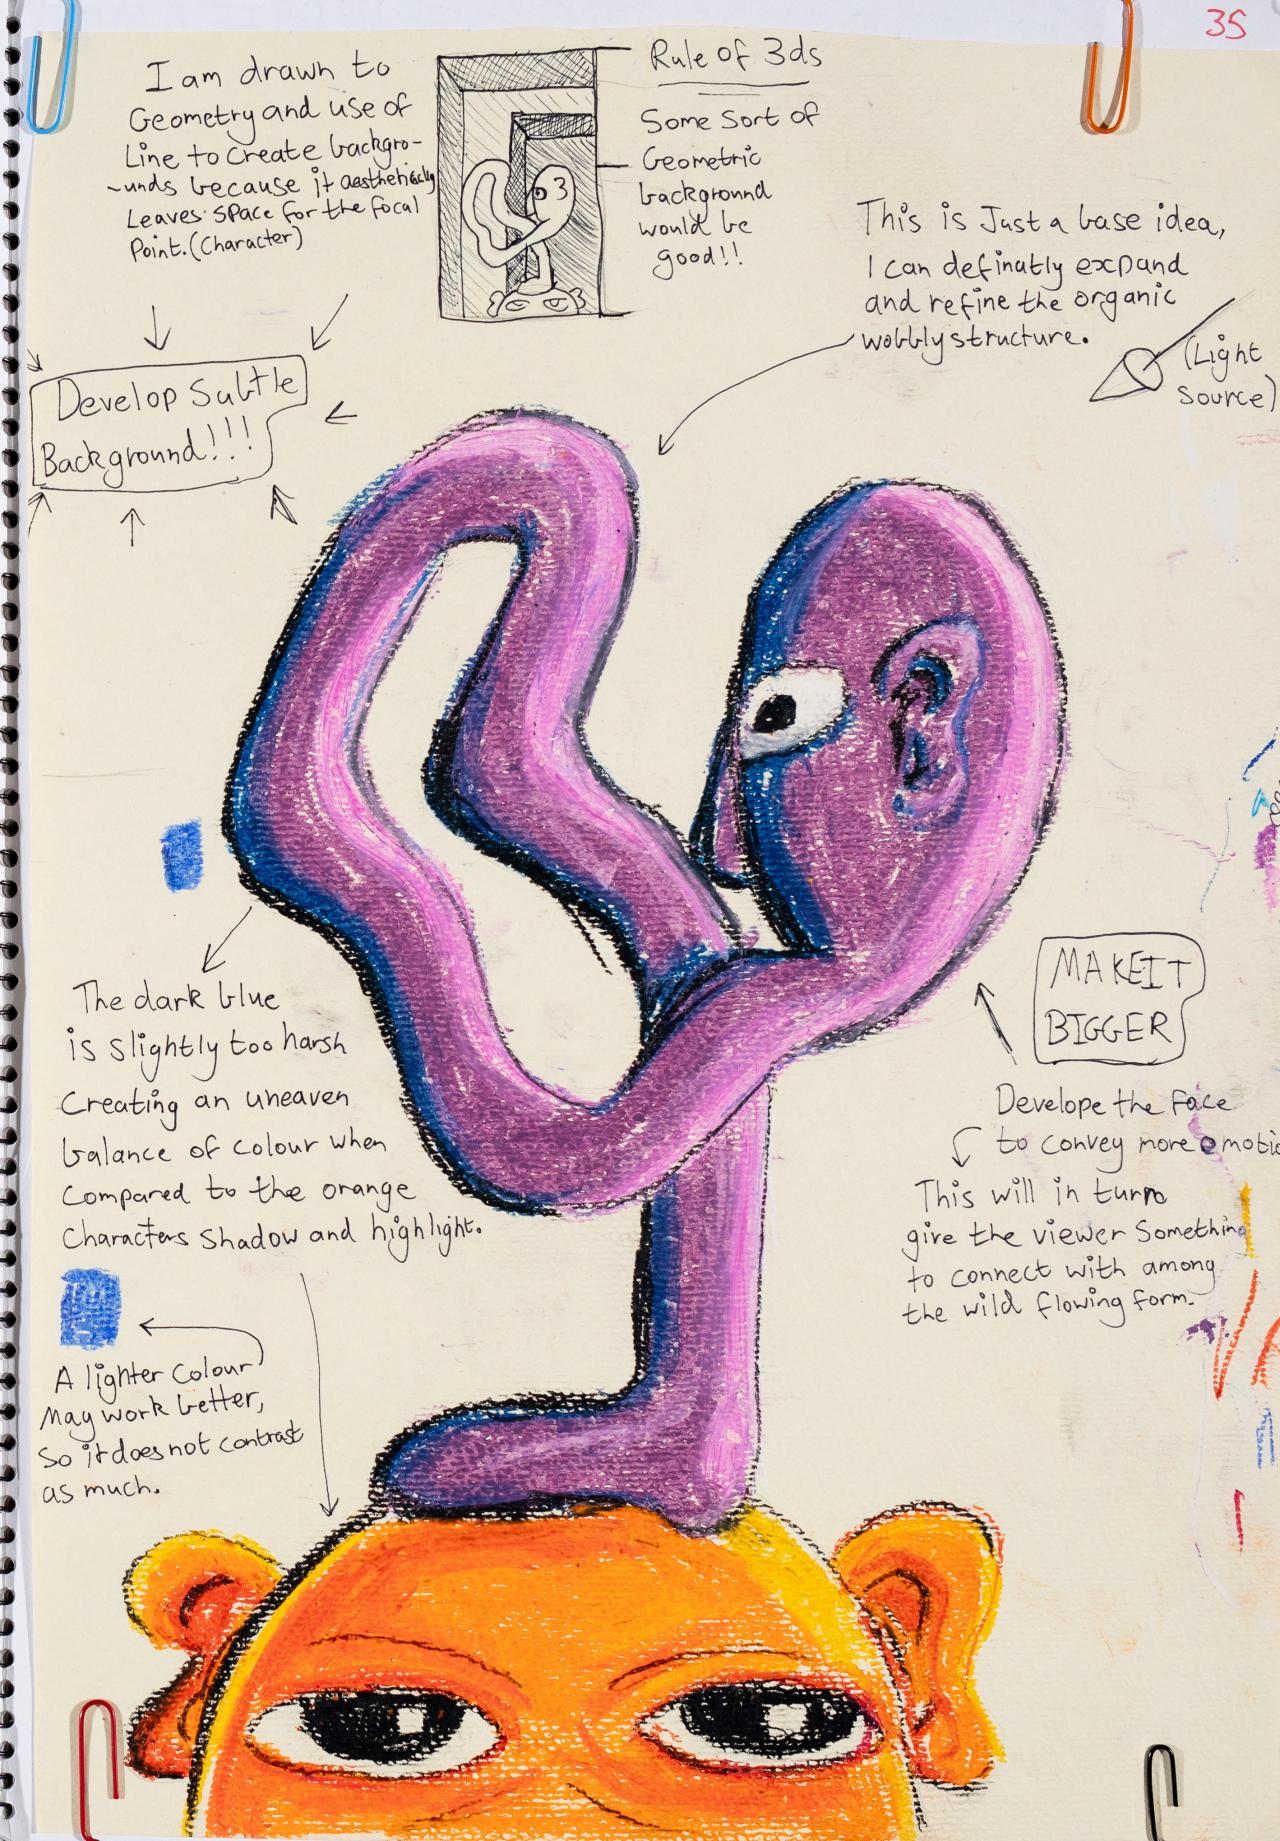 35
I am drawn to
Geometry and use of
Line to create backgro-
-unds because it aesthetically
Leaves space for the focal
Point. (Character)
Rule of 3ds
Some sort of
Geometric
background
would be
good!!
This is Just a base idea,
I can definatly expand
and refine the organic
wobbly structure.
(Light
source)
Develop Subtle
Background!!!
The dark blue
is slightly too harsh
Creating an uneaven
balance of colour when
compared to the orange
Characters shadow and highlight.
A lighter colour
May work better,
So it does not contrast
as much.
MAKE IT
BIGGER
Develope the face
to convey more emotio
This will in turn
give the viewer something
to connect with among
the wild flowing form.